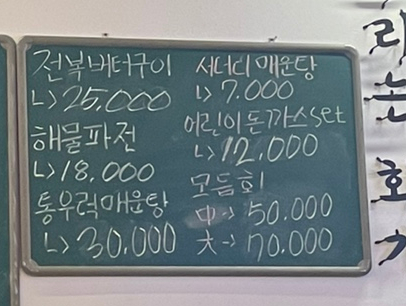 전복버터구이
↳ 25,000
해물파전
↳ 18,000
통우럭매운탕
↳ 30,000
서더리매운탕
↳ 7,000
어린이돈까스set
↳ 12,000
모듬회
中→ 50,000
大→ 70,000
리
는
호